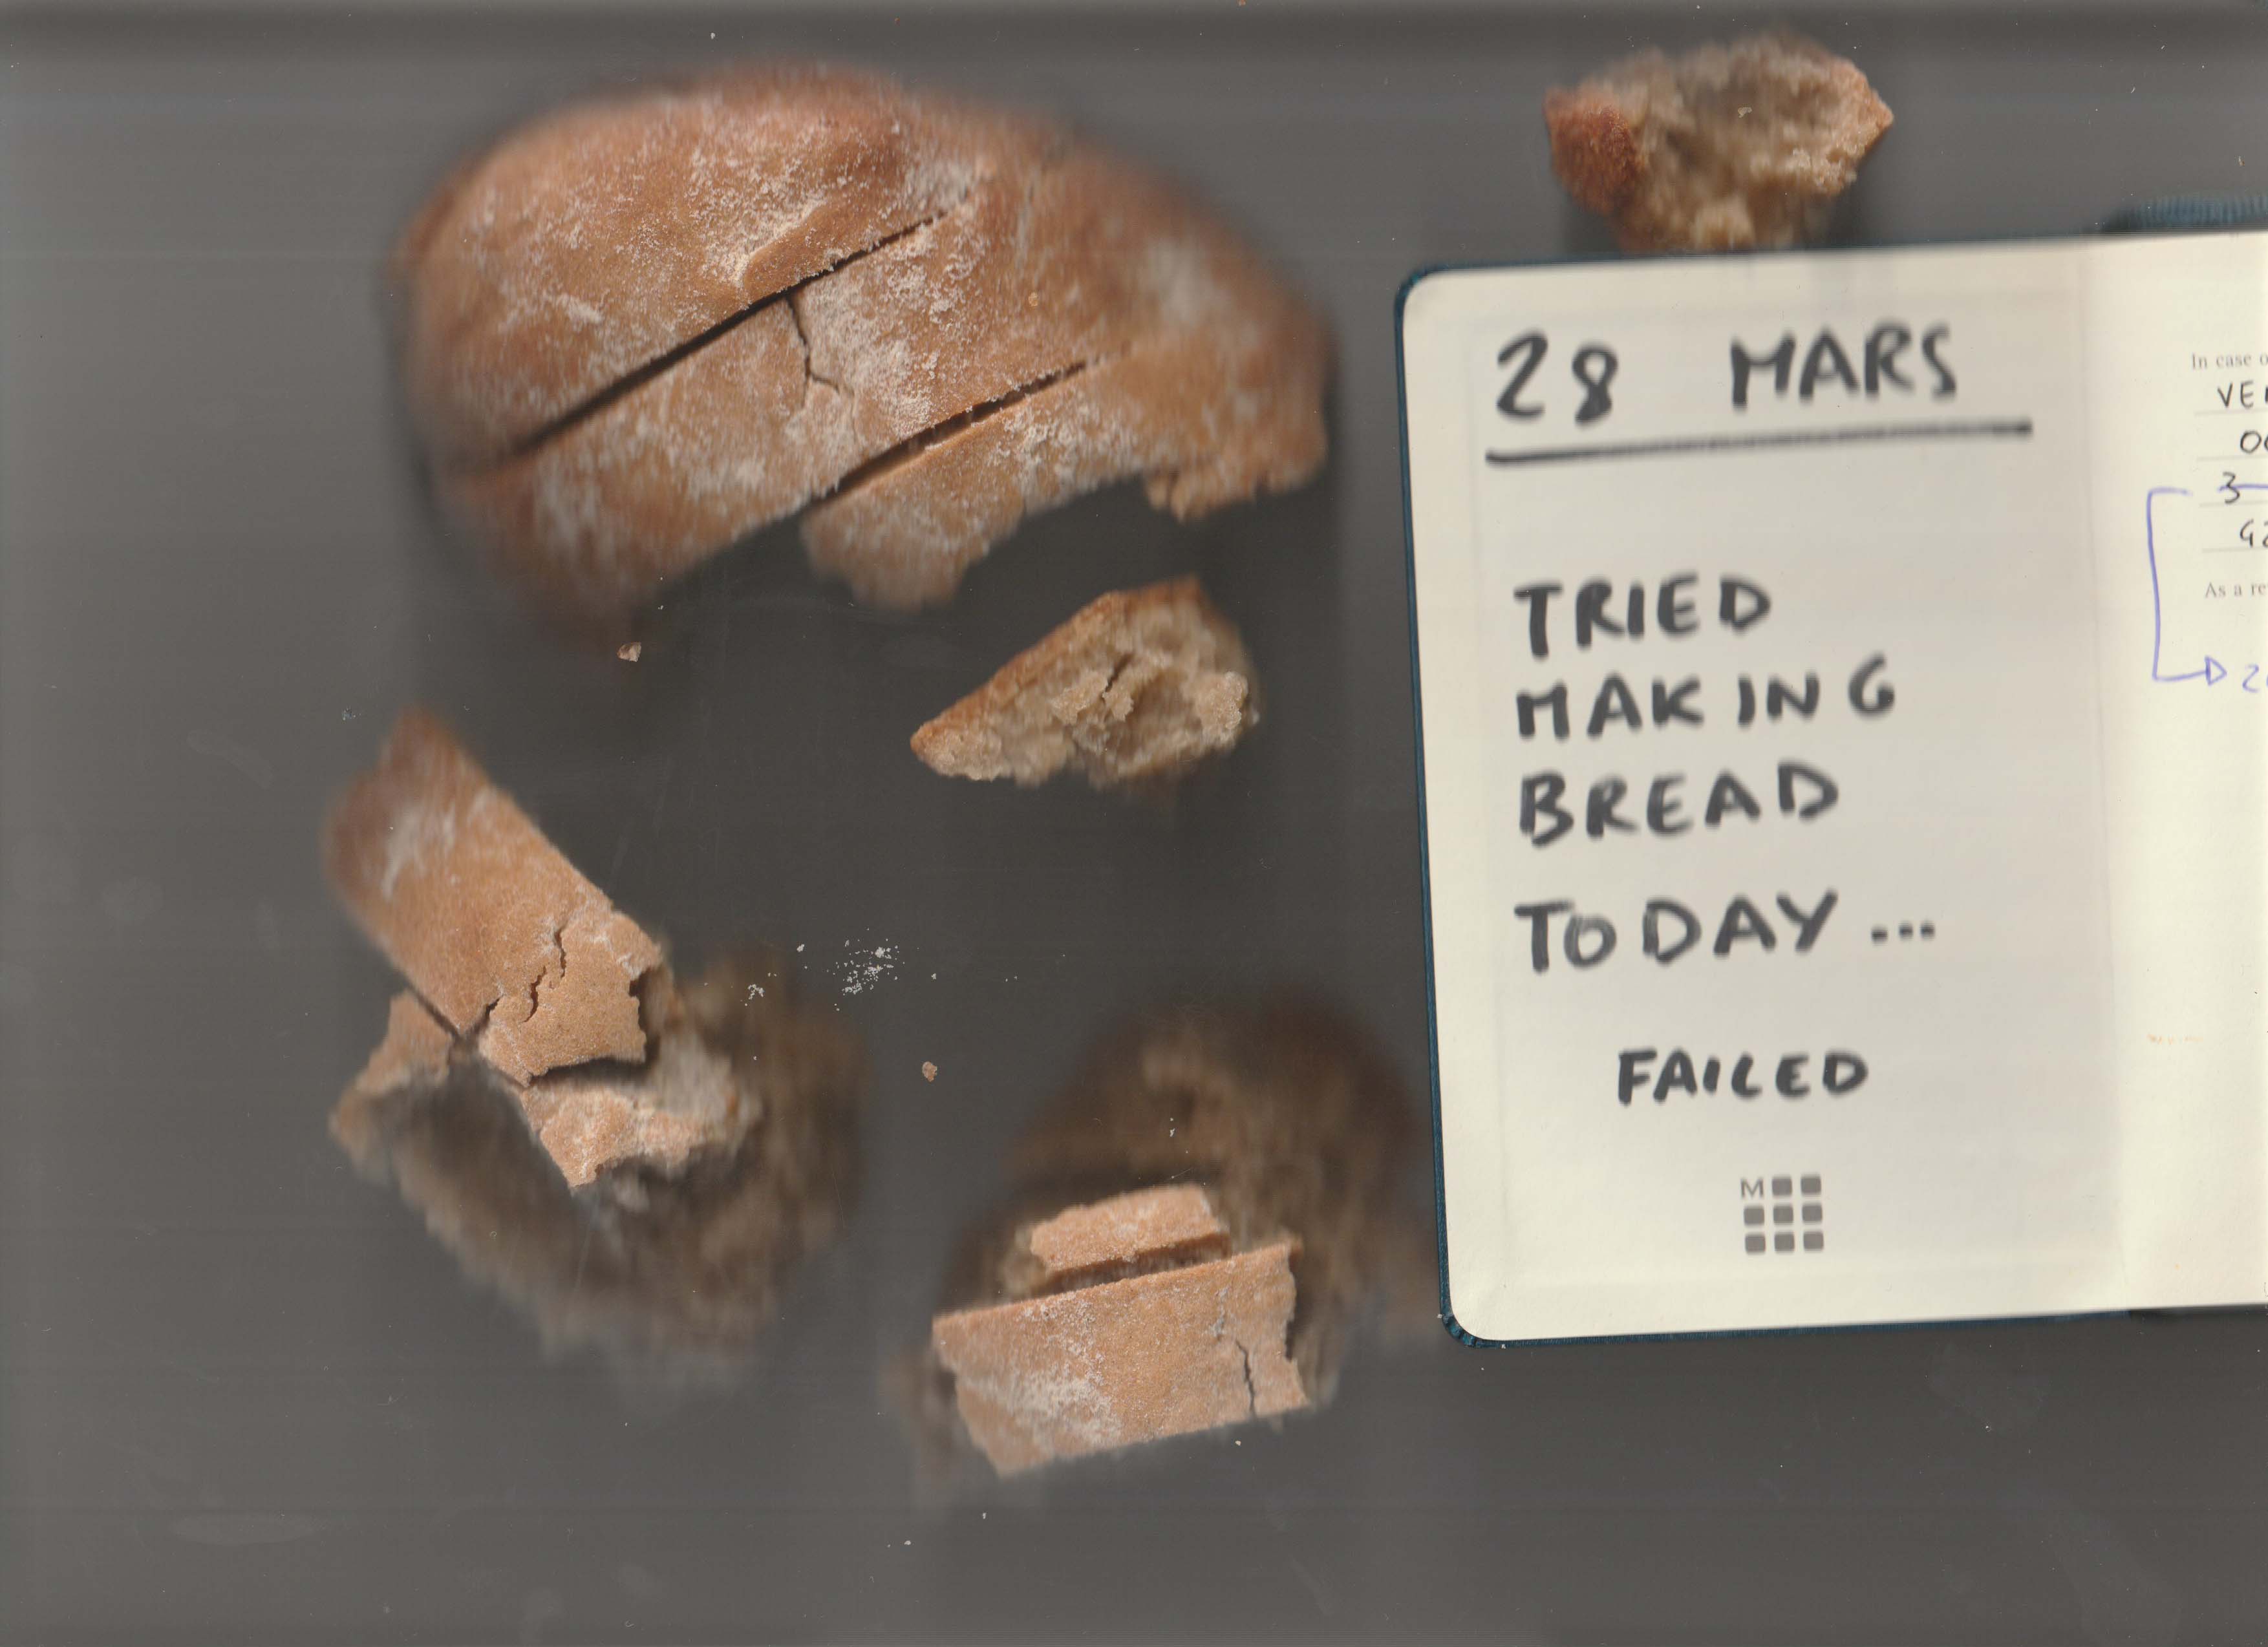 28 MARS
TRIED
MAKING
BREAD
TODAY...
FAILED
M
In case o
As a re